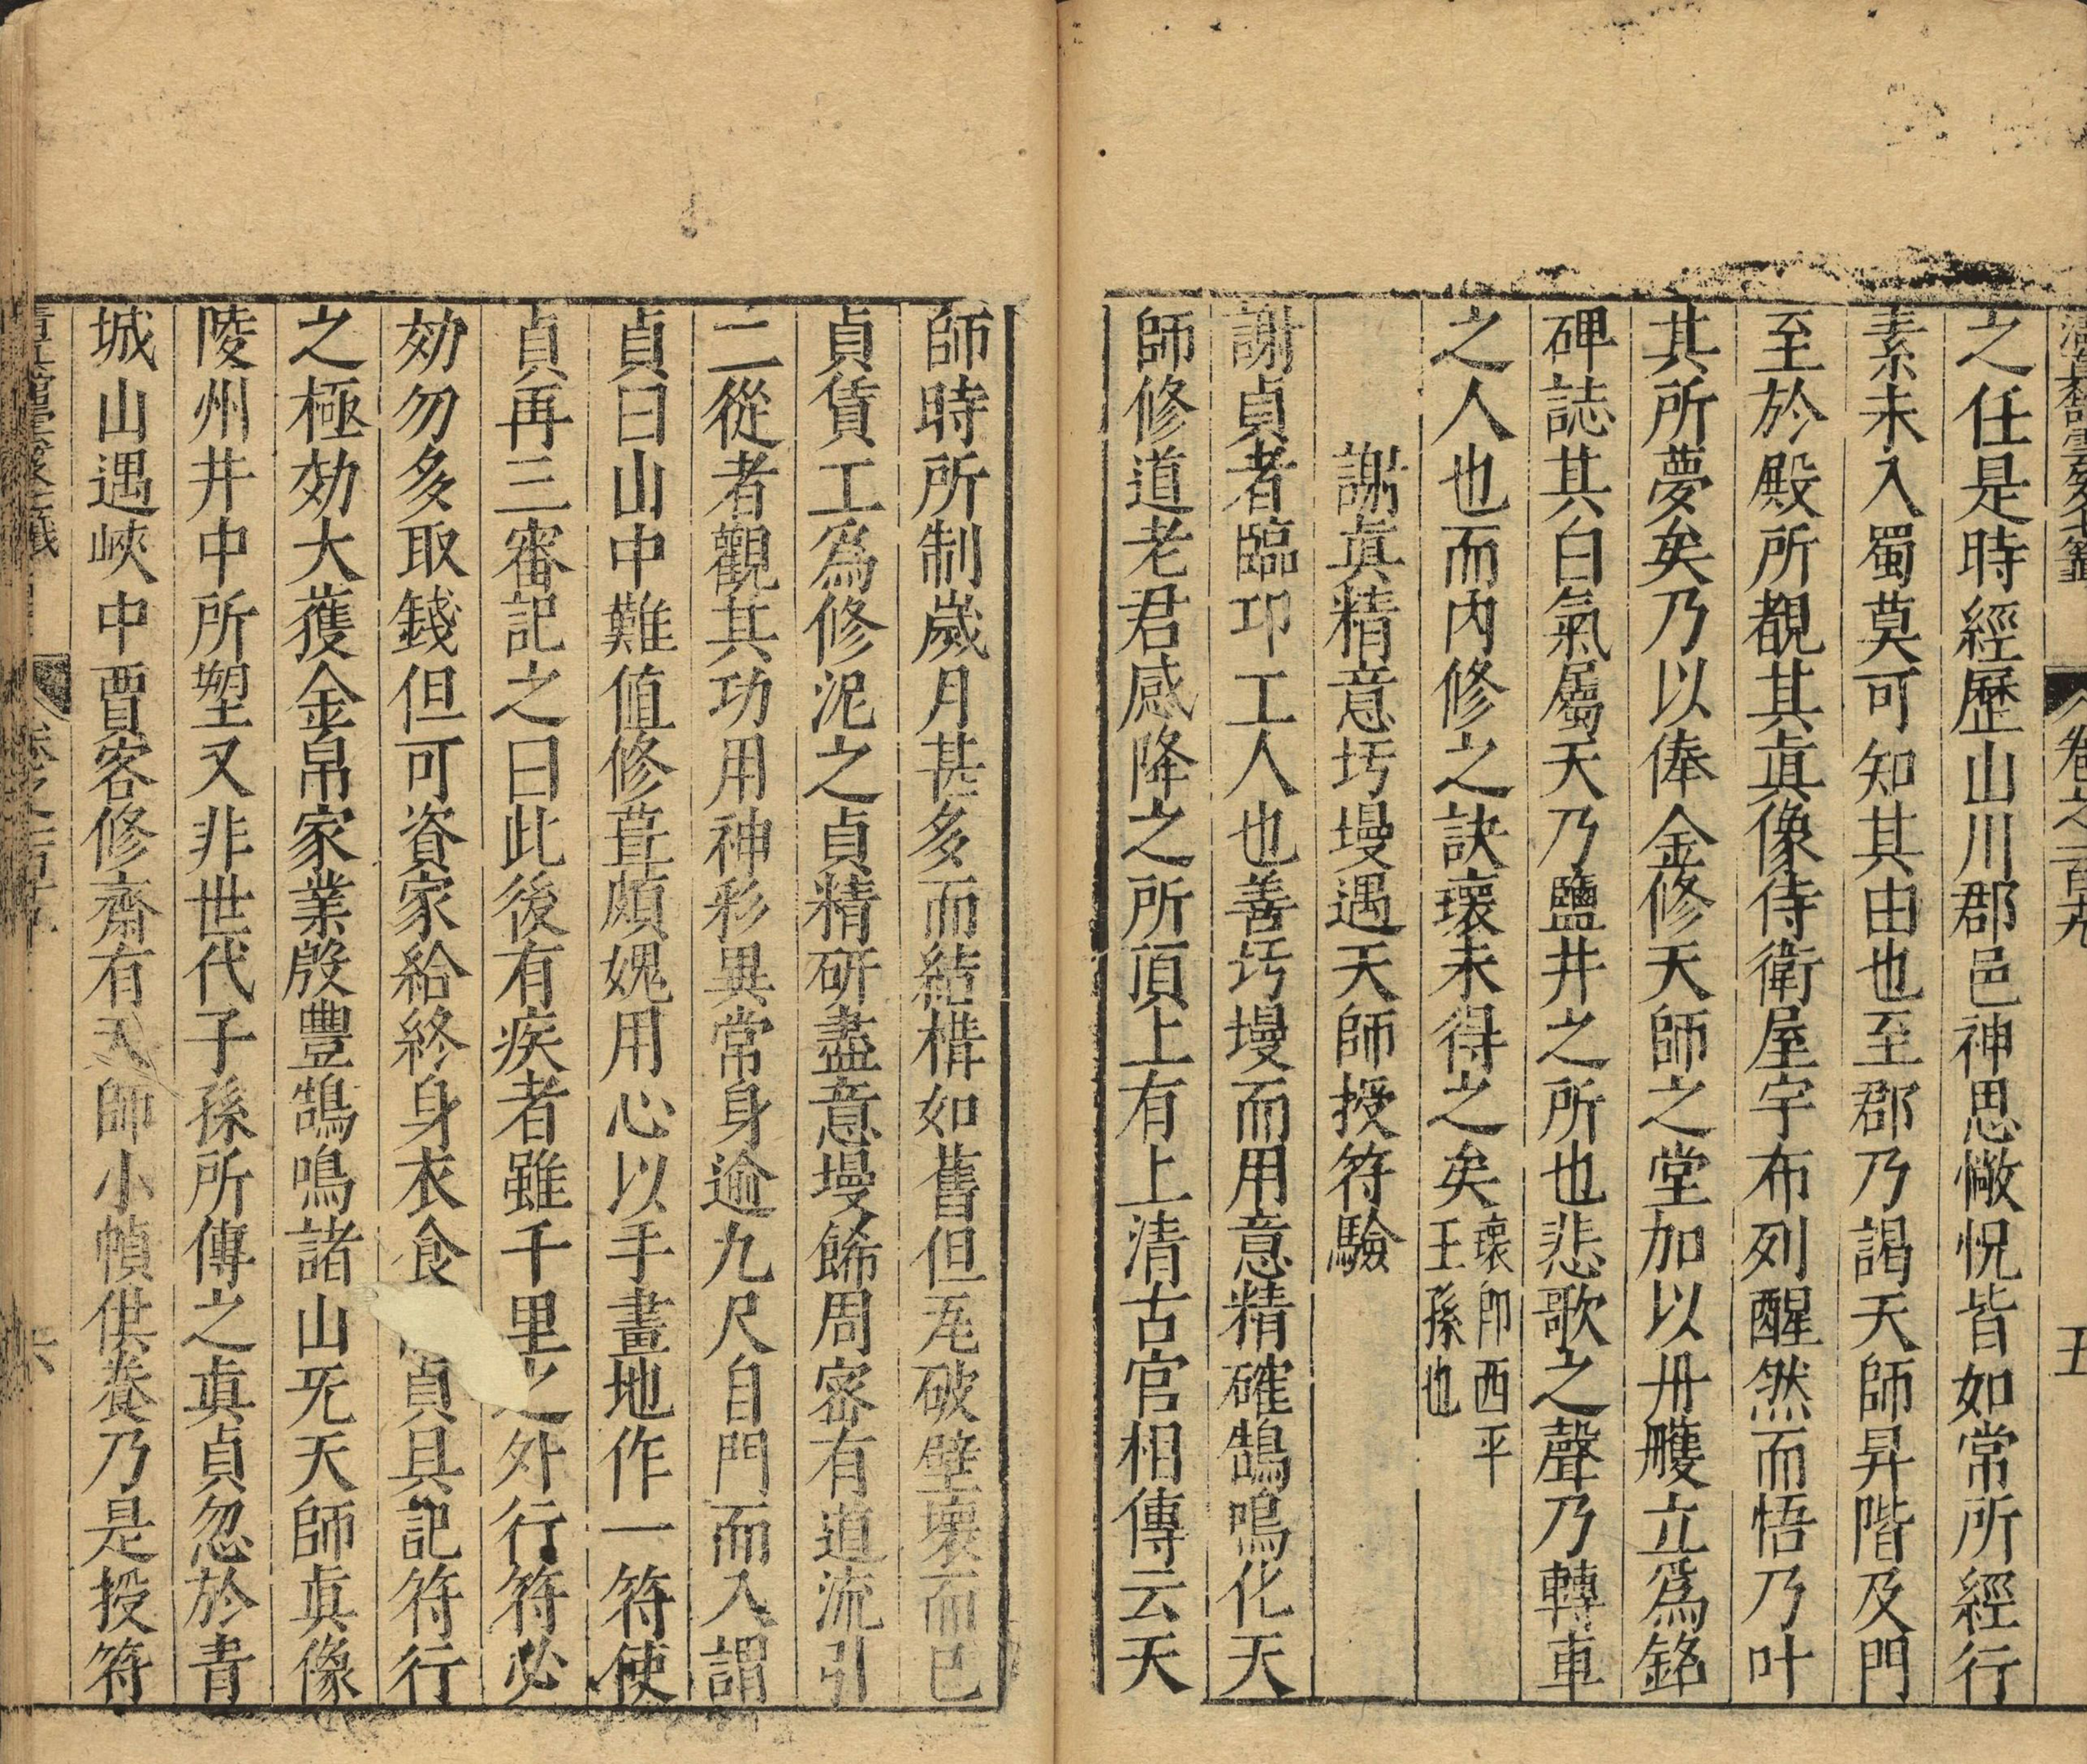 之任是時經歷山川郡邑神思惝怳皆如常所經行
素未入蜀莫可知其由也至郡乃謁天師昇階及門
至於殿所覩其眞像侍衛屋宇布列醒然而悟乃叶
其所夢矣乃以俸金修天師之堂加以丹雘立爲銘
碑誌其白氣屬天乃鹽井之所也悲歌之聲乃轉車
之人也而內修之訣壞未得之矣壞卽西平王孫也
謝眞精意圬墁遇天師授符驗
謝貞者臨邛工人也善圬墁而用意精確鵠鳴化天
師修道老君感降之所頂上有上清古官相傳云天
師時所制歲月甚多而結構如舊但瓦破壁壞而已
貞賃工爲修泥之貞精研盡意墁餙周密有道流引
二從者觀其功用神彩異常身逾九尺自門而入謂
貞曰山中難值修葺頗媿用心以手畫地作一符使
貞再三審記之曰此後有疾者雖千里之外行符必
効勿多取錢但可資家給終身衣食貞具記符行
之極効大獲金帛家業殷豐鵠鳴諸山旡天師眞像
陵州井中所塑又非世代子孫所傳之眞貞忽於青
城山遇峽中賈客修齋有天師小幀供養乃是授符